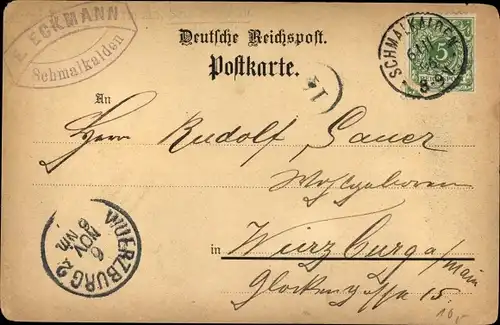 E. ECKMANN
Schmalkalden
Deutsche Reichspost.
Postkarte.
SCHMALKALDEN
8-9
5
An
Herrn Rudolf Sauer
Wohlgeboren
in Würzburg a/Main
Glockengasse 15.
WUERZBURG 2
6
NOV
6
Nm.